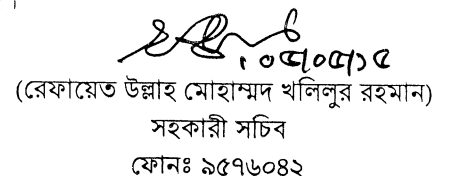 ০৫/০৫/১৫
(রেফায়েত উল্লাহ মোহাম্মদ খলিলুর রহমান)
সহকারী সচিব
ফোনঃ ৯৫৭৬০৪২